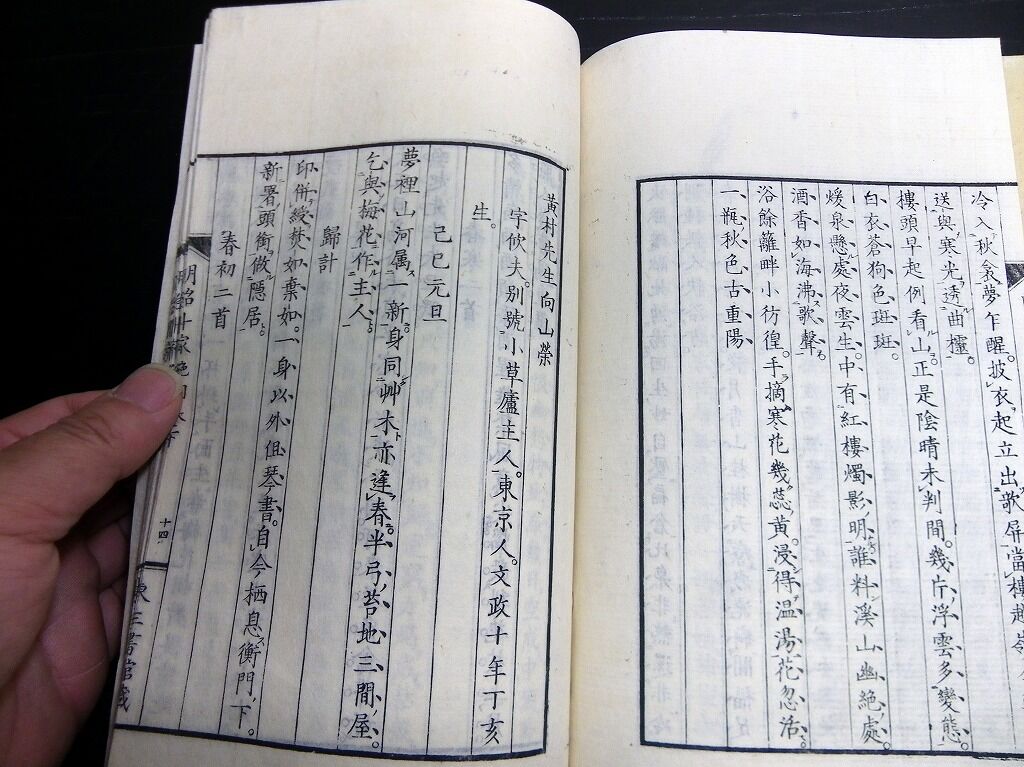 冷入秋衾夢乍醒。披衣起立出歌屏當樓越
送與寒光透曲櫺。
樓頭早起例看山。正是陰晴未判間。幾片浮雲多變態。
白衣蒼狗色斑斑。
煖泉懸處夜雲生。中有紅樓燭影明。誰料溪山幽絕處。
酒香如海沸歌聲。
浴餘籬畔小彷徨。手摘寒花幾蕊黃。浸得溫湯花忽活。
一瓶秋色古重陽
黃村先生向山榮
字欣夫。別號小草廬主人。東京人。文政十年丁亥
生。
己巳元旦
夢裡山河属一新。身同艸木亦逢春。半弓苔地三間屋。
乞與梅花作主人。
歸計
印併綬焚如棄如。一身以外但琴書。自今栖息衡門下。
新署頭銜做隱居。
春初二首
明治十家絕句
十四
東生書館藏